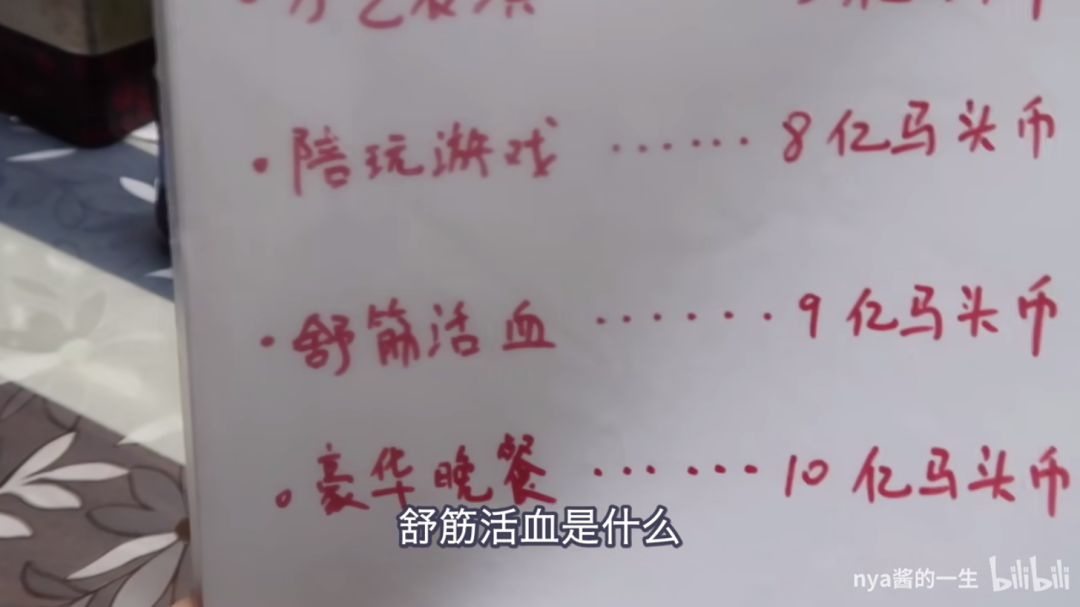 · 陪玩游戏 ······ 8亿马头币
· 舒筋活血 ······ 9亿马头币
· 豪华晚餐 ······ 10亿马头币
舒筋活血是什么
nya酱的一生 bilibili